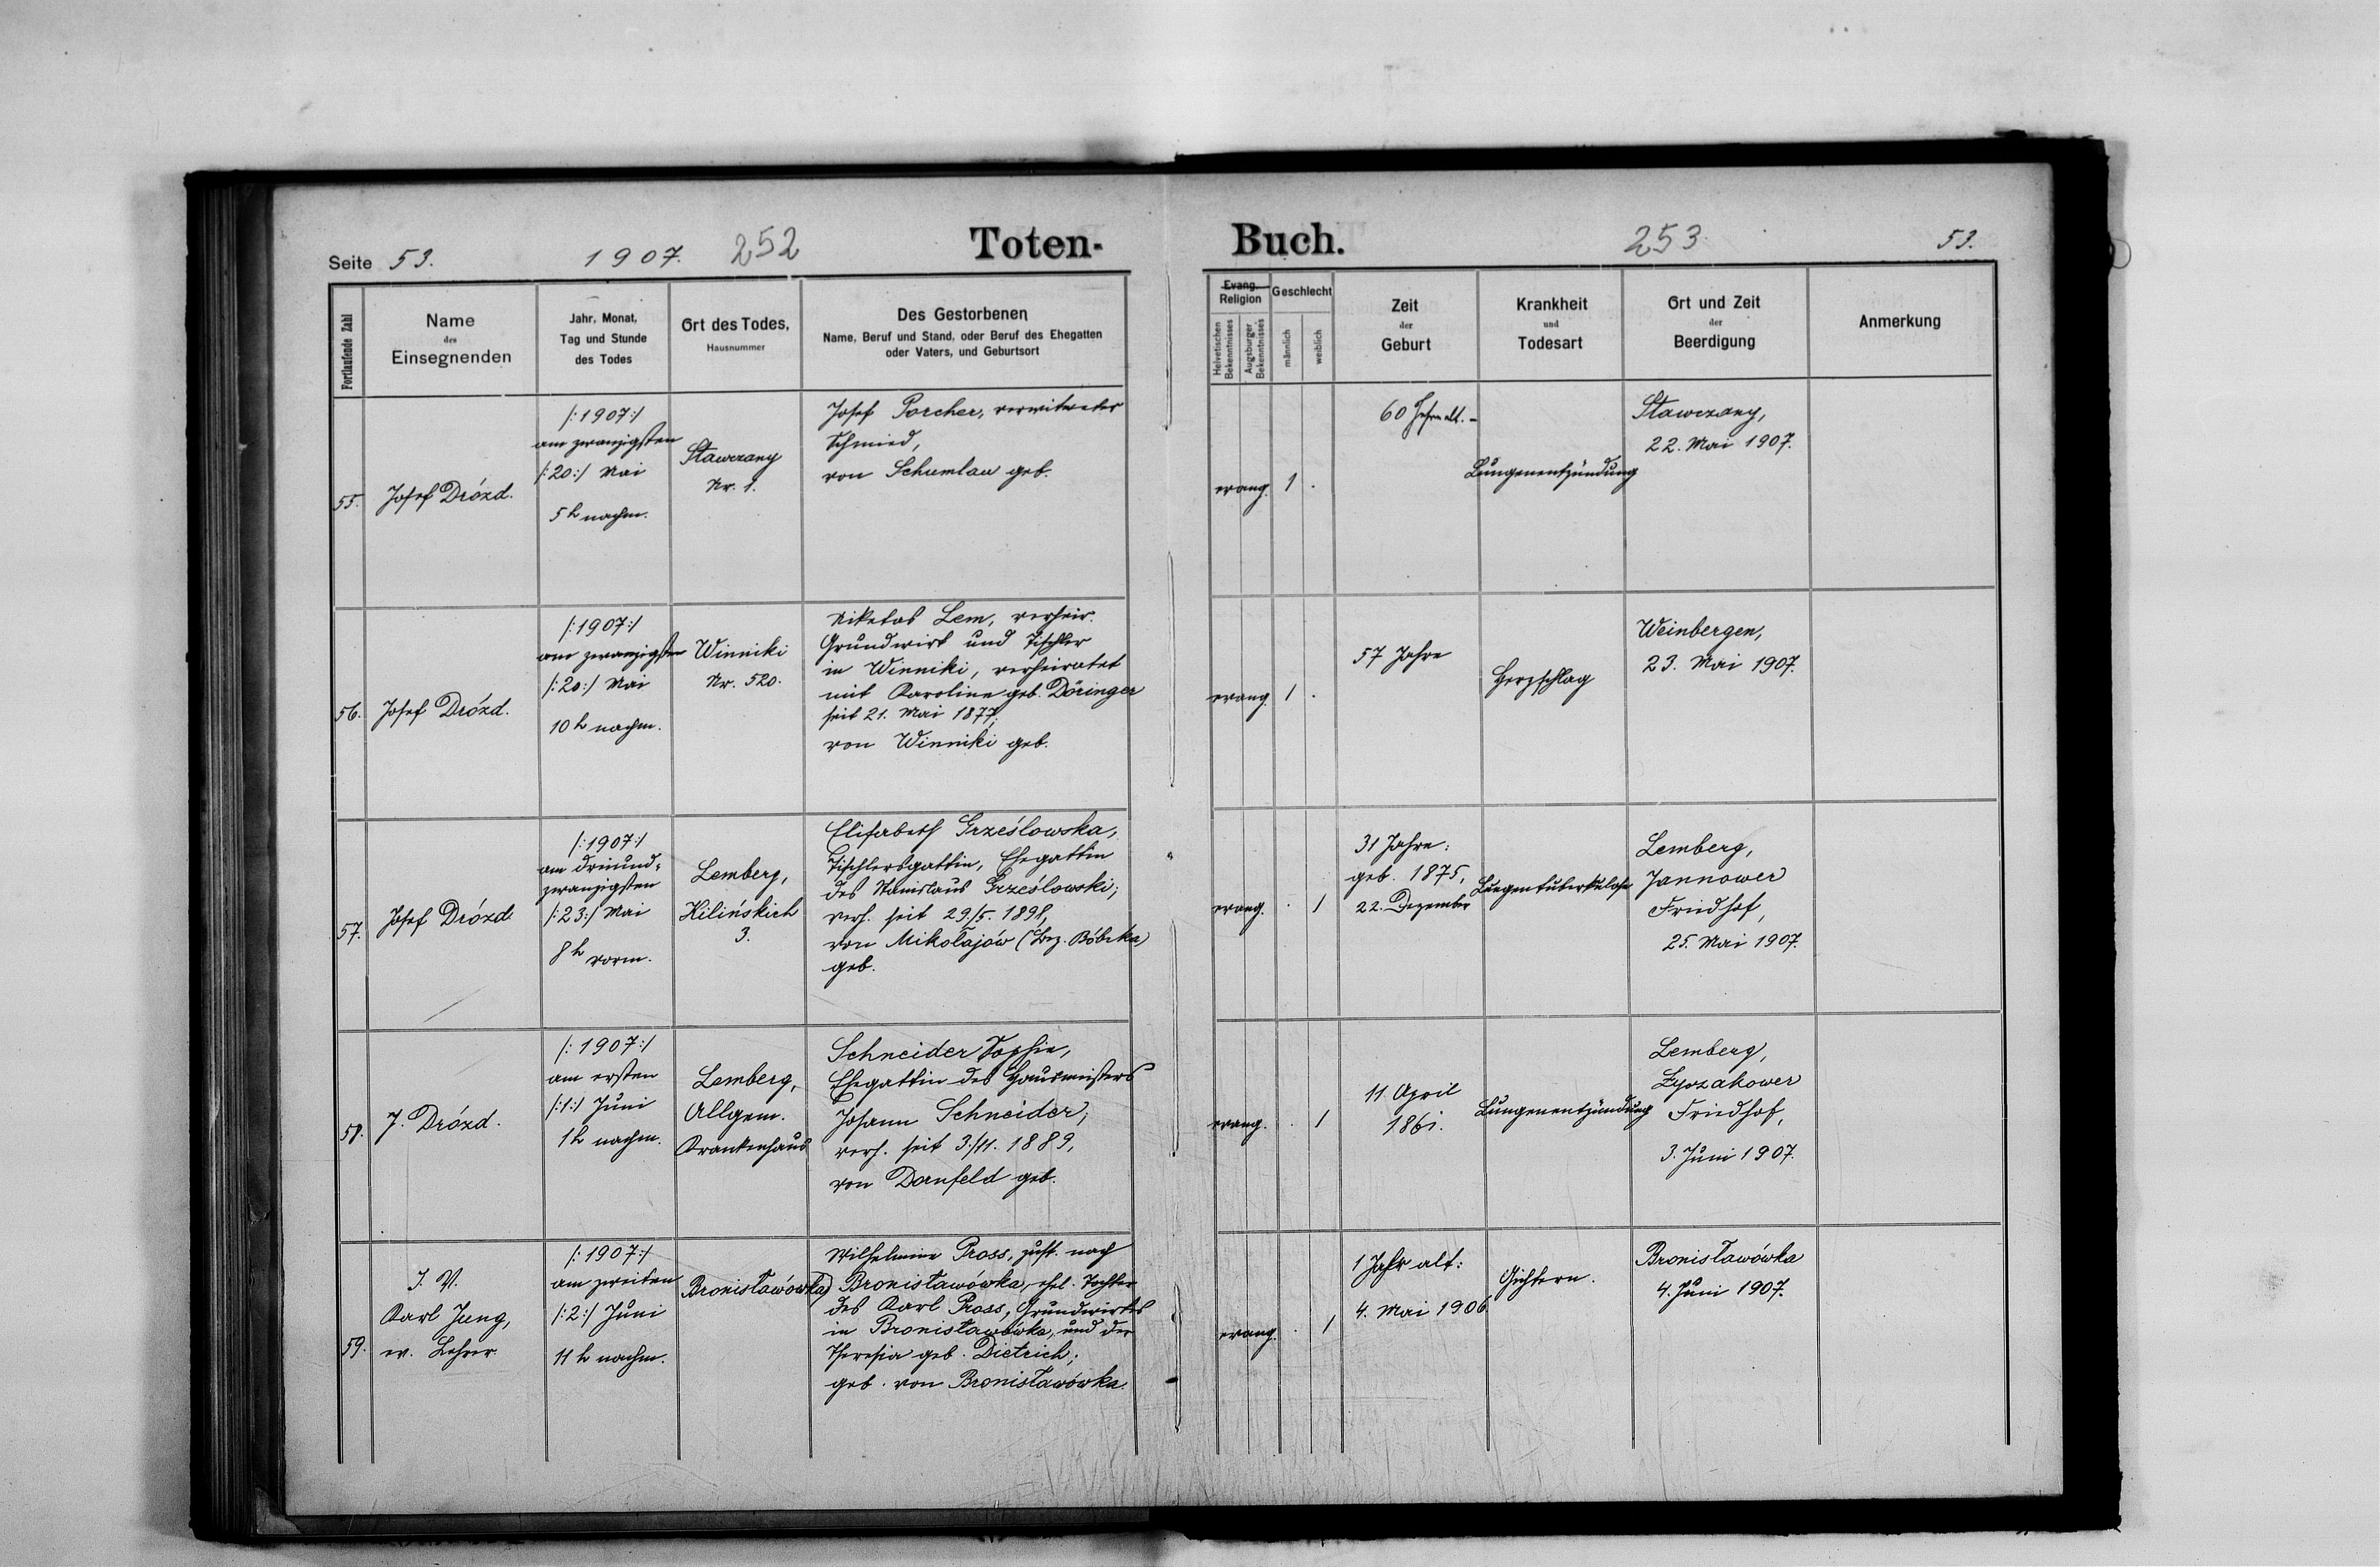 Seite 53.
1907. 252
Toten-
Buch.
253
53.
Fortlaufende Zahl
Name
des
Einsegnenden
Jahr, Monat,
Tag und Stunde
des Todes
Ort des Todes,
Hausnummer
Des Gestorbenen
Name, Beruf und Stand, oder Beruf des Ehegatten
oder Vaters, und Geburtsort
Evang.
Religion
Helvetischen
Bekenntnisses
Augsburger
Bekenntnisses
Geschlecht
männlich
weiblich
Zeit
der
Geburt
Krankheit
und
Todesart
Ort und Zeit
der
Beerdigung
Anmerkung
55.
Josef Drózd.
/:1907:/
am zwanzigsten
/:20:/ Mai
5 h nachm.
Stawczany
Nr. 1.
Josef Porcher, verwitweter
Schmied,
von Schumlau geb.
evang.
1
.
60 Jahre alt. -
Lungenentzündung
Stawczany,
22. Mai 1907.
56.
Josef Drózd.
/:1907:/
am zwanzigsten
/:20:/ Mai
10 h nachm.
Winniki
Nr. 520.
Niketas Lem, verheir.
Grundwirt und Tischler
in Winniki, verheiratet
mit Karoline geb. Döringer
seit 21. Mai 1877;
von Winniki geb.
evang.
1
.
57 Jahre
Herzschlag
Weinbergen,
23. Mai 1907.
57.
Josef Drózd
/:1907:/
am dreiund-
zwanzigsten
/:23:/ Mai
8 h vorm.
Lemberg,
Kilińskich
3.
Elisabeth Grześlowska,
Tischlersgattin, Ehegattin
des Stanislaus Grześlowski;
verh. seit 29./5. 1898,
von Mikołajów (Bez. Bóbrka)
geb.
evang.
.
1
31 Jahre:
geb. 1875,
22. Dezember
Lungentuberkulose
Lemberg,
Jannower
Friedhof,
25. Mai 1907.
58.
J. Drózd.
/:1907:/
am ersten
/:1:/ Juni
1 h nachm.
Lemberg,
Allgem.
Krankenhaus
Schneider Sophie,
Ehegattin des Hausmeisters
Johann Schneider;
verh. seit 3./11. 1889,
von Dornfeld geb.
evang.
.
1
11 April
1861.
Lungenentzündung
Lemberg,
Łyczakower
Friedhof,
3. Juni 1907.
59.
I. V.
Karl Jung,
ev. Lehrer.
/:1907:/
am zweiten
/:2:/ Juni
11 h nachm.
Bronisławówka
Wilhelmine Pross, zust. nach
Bronisławówka, ehel. Tochter
des Karl Pross, Grundwirtes
in Bronisławówka, und der
Theresia geb. Dietrich;
geb. von Bronisławówka.
evang.
.
1
1 Jahr alt:
4. Mai 1906.
Gichtern.
Bronisławówka
4. Juni 1907.